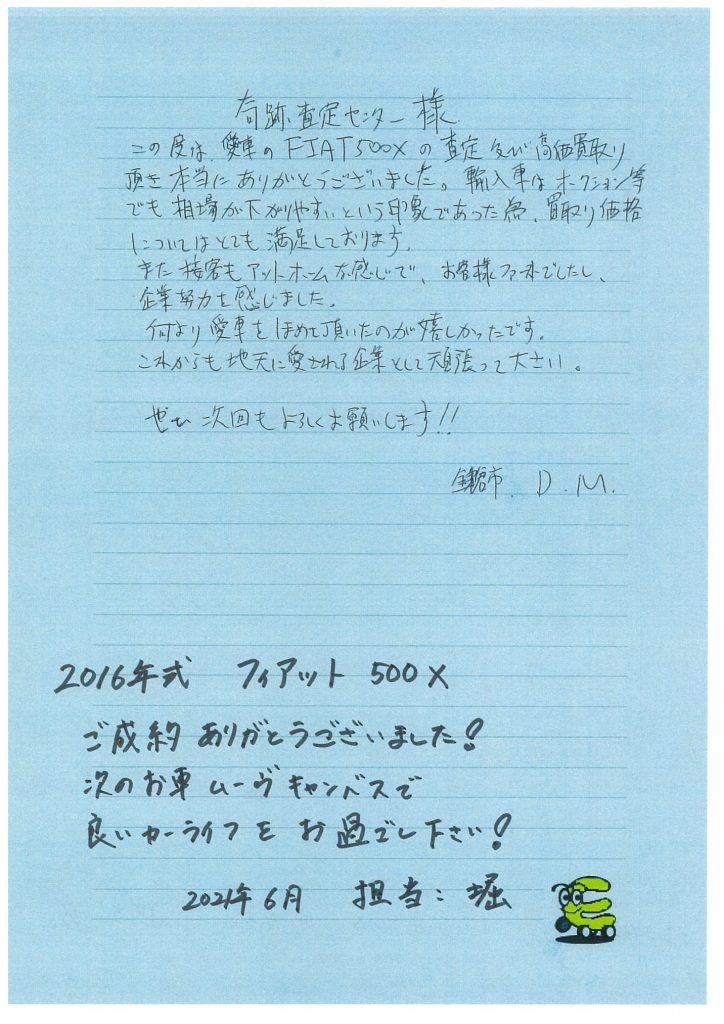 奇跡査定センター様
この度は、愛車のFIAT500Xの査定及び高価買取り
頂き本当にありがとうございました。輸入車はオークション等
でも相場が下がりやすいという印象であった為、買取り価格
についてはとても満足しております。
また接客もアットホームな感じで、お客様ファーストでしたし、
企業努力を感じました。
何より愛車をほめて頂いたのが嬉しかったです。
これからも地元に愛される企業として頑張って下さい。
ぜひ次回もよろしくお願いします!!
鎌倉市. D.M.
2016年式 フィアット 500X
ご成約ありがとうございました!
次のお車 ムーヴキャンバスで
良いカーライフを お過ごし下さい!
2021年6月 担当:堀